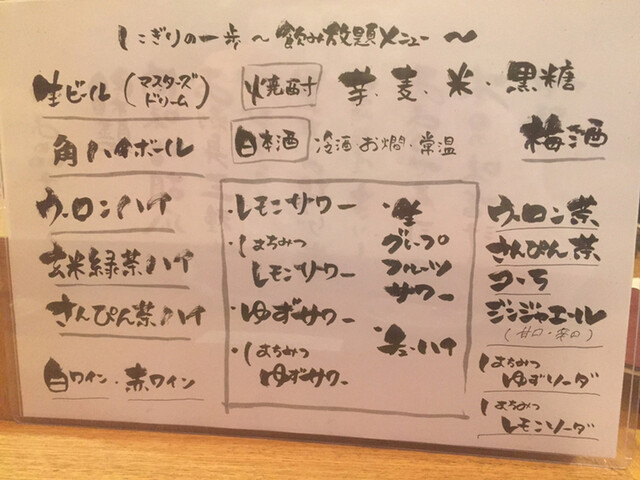 しこぎりの一歩～飲み放題メニュー～
生ビール(マスターズドリーム)
角ハイボール
ウーロンハイ
玄米緑茶ハイ
さんぴん茶ハイ
白ワイン・赤ワイン
焼酎 芋・麦・米・黒糖
日本酒 冷酒・お燗・常温
梅酒
・レモンサワー
・はちみつ
レモンサワー
・ゆずサワー
・はちみつ
ゆずサワー
・生
グレープ
フルーツ
サワー
・チューハイ
ウーロン茶
さんぴん茶
コーラ
ジンジャエール
(甘口・辛口)
はちみつ
ゆずソーダ
はちみつ
レモンソーダ